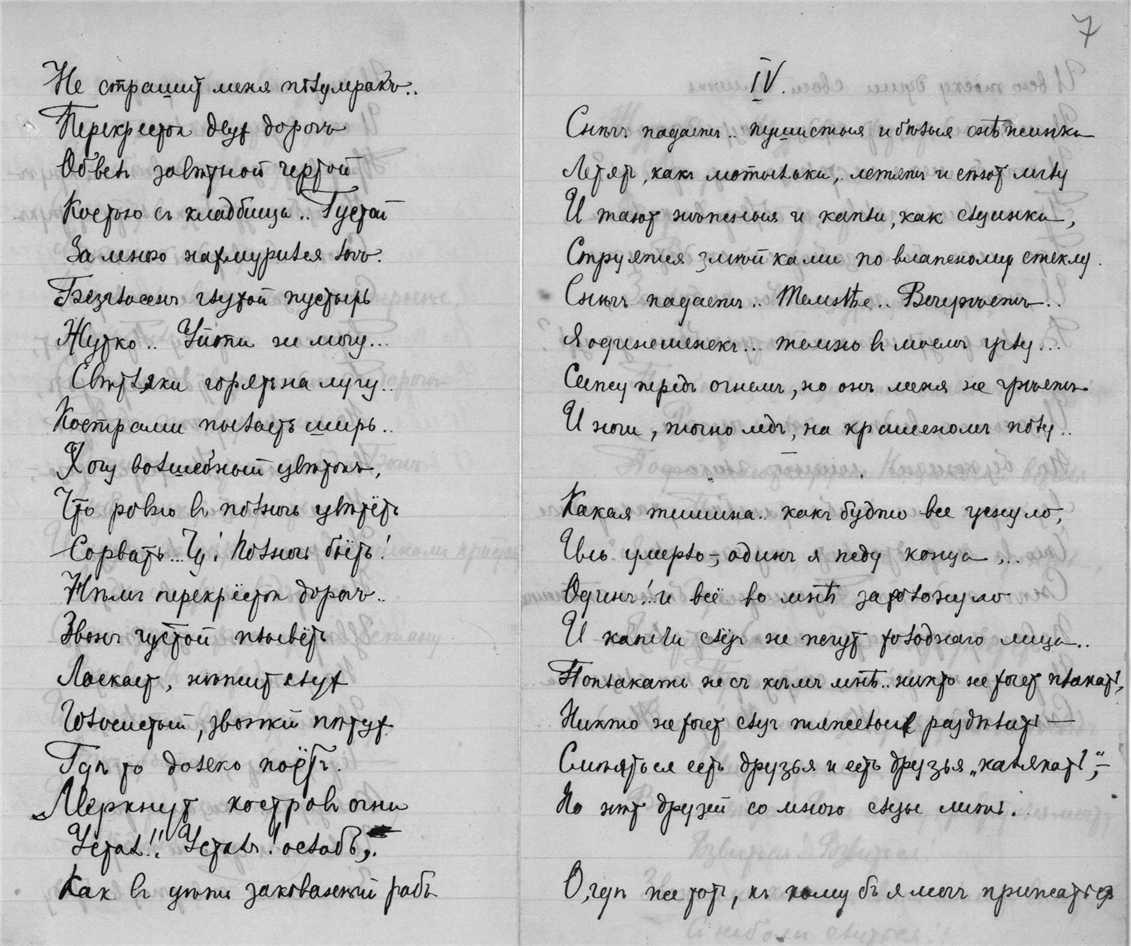 Не страшит меня полумракъ..
Перекресток двух дорогъ
Обвелъ завѣтной чертой
Костью съ кладбища.. Густой
За мною нахмурился логъ.
Безгласенъ глухой пустырь
Жутко.. Уйти не могу...
Свѣтляки горятъ на лугу..
Кострами пылаетъ ширь..
Хочу волшебный цвѣтокъ,
Что ровно въ полночь цвѣтётъ
Сорвать... Чу! Полночь бьётъ!
Нѣмъ перекрёсток дорогъ..
Звонъ густой плывётъ
Ласкает, нѣжит слух
Голосистый, звонкій пѣтух
Гдѣ то далеко поётъ.
Меркнут костров огни
Усталъ!! Усталъ! ослабъ,
Как въ цѣпи закованный рабъ
7
IV.
Снѣгъ падаетъ.. пушистыя и бѣлыя снѣжинки
Летятъ, какъ мотыльки, летятъ и стелют мглу
И тают на стеклѣ и капли, как слезинки,
Струятся змѣйками по стеклу.
Снѣгъ падаетъ.. Темнѣе.. Вечерѣетъ..
Я одинешенекъ... темно въ моемъ углу...
Сижу передъ огнемъ, но онъ меня не грѣетъ
И ноги, точно ледъ, на крашеномъ полу..
Какая тишина.. какъ будто все уснуло,
Иль умерло,- одинъ я жду конца...
Одинъ!.. и всё во мнѣ захолонуло
И капли слёз не жгут холоднаго лица..
Поплакать не съ кѣмъ мнѣ.. никто не хочет плакать,
Никто не хочет слёз тяжелых раздѣлять —
Смѣяться есть друзья и есть друзья „калякать",—
Но нѣт друзей со мною слёзы лить!
О, гдѣ же тотъ, къ кому бъ я могъ прижаться